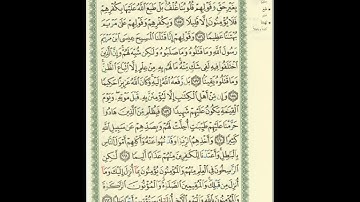 بِغَيْرِ حَقٍّ وَقَوْلِهِمْ قُلُوبُنَا غُلْفٌ بَلْ طَبَعَ اللَّهُ عَلَيْهَا بِكُفْرِهِمْ
فَلَا يُؤْمِنُونَ إِلَّا قَلِيلًا ١٥٥ وَبِكُفْرِهِمْ وَقَوْلِهِمْ عَلَىٰ مَرْيَمَ
بُهْتَانًا عَظِيمًا ١٥٦ وَقَوْلِهِمْ إِنَّا قَتَلْنَا الْمَسِيحَ عِيسَى ابْنَ مَرْيَمَ
رَسُولَ اللَّهِ وَمَا قَتَلُوهُ وَمَا صَلَبُوهُ وَلَٰكِن شُبِّهَ لَهُمْ وَإِنَّ الَّذِينَ
اخْتَلَفُوا فِيهِ لَفِي شَكٍّ مِّنْهُ مَا لَهُم بِهِ مِنْ عِلْمٍ إِلَّا اتِّبَاعَ الظَّنِّ
وَمَا قَتَلُوهُ يَقِينًا ١٥٧ بَل رَّفَعَهُ اللَّهُ إِلَيْهِ وَكَانَ اللَّهُ عَزِيزًا حَكِيمًا
١٥٨ وَإِن مِّنْ أَهْلِ الْكِتَابِ إِلَّا لَيُؤْمِنَنَّ بِهِ قَبْلَ مَوْتِهِ وَيَوْمَ
الْقِيَامَةِ يَكُونُ عَلَيْهِمْ شَهِيدًا ١٥٩ فَبِظُلْمٍ مِّنَ الَّذِينَ هَادُوا
حَرَّمْنَا عَلَيْهِمْ طَيِّبَاتٍ أُحِلَّتْ لَهُمْ وَبِصَدِّهِمْ عَن سَبِيلِ اللَّهِ
كَثِيرًا ١٦٠ وَأَخْذِهِمُ الرِّبَا وَقَدْ نُهُوا عَنْهُ وَأَكْلِهِمْ أَمْوَالَ النَّاسِ
بِالْبَاطِلِ وَأَعْتَدْنَا لِلْكَافِرِينَ مِنْهُمْ عَذَابًا أَلِيمًا ١٦١ لَّٰكِنِ
الرَّاسِخُونَ فِي الْعِلْمِ مِنْهُمْ وَالْمُؤْمِنُونَ يُؤْمِنُونَ بِمَا أُنزِلَ إِلَيْكَ وَمَا
أُنزِلَ مِن قَبْلِكَ وَالْمُقِيمِينَ الصَّلَاةَ وَالْمُؤْتُونَ الزَّكَاةَ
وَالْمُؤْمِنُونَ بِاللَّهِ وَالْيَوْمِ الْآخِرِ أُولَٰئِكَ